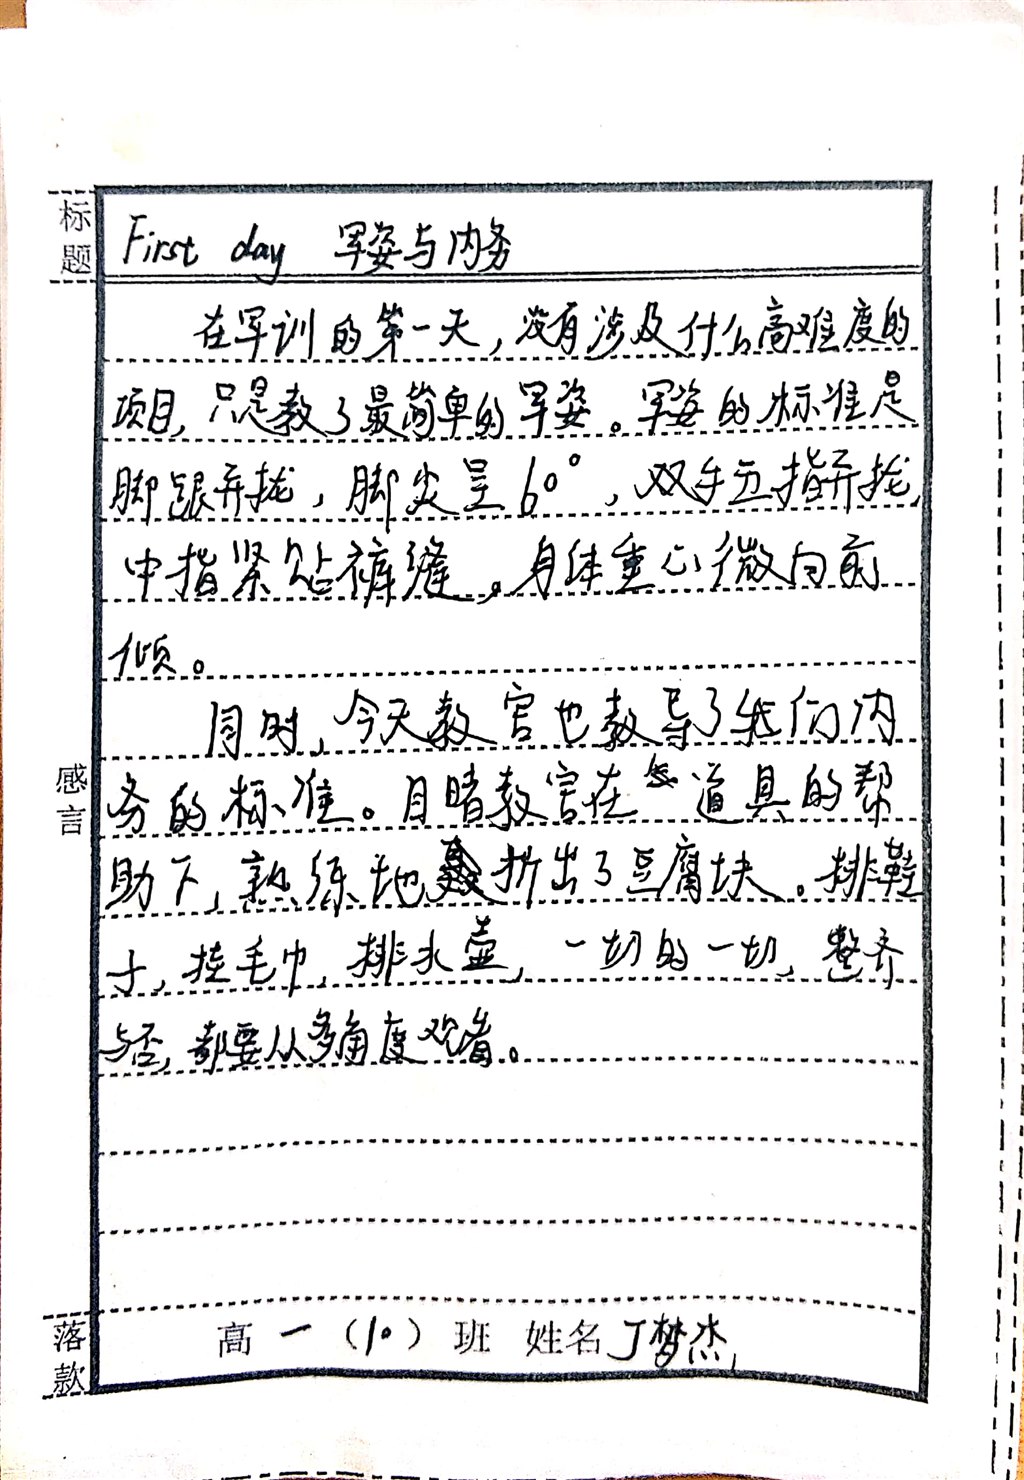 标题
First day 军姿与内务
在军训的第一天，没有涉及什么高难度的
项目，只是教了最简单的军姿。军姿的标准是
脚跟并拢，脚尖呈60°，双手五指并拢，
中指紧贴裤缝。身体重心微向前
倾。
同时，今天教官也教导了我们内
感言
务的标准。目睹教官在 道具的帮
助下，熟练地折出了豆腐块。排鞋
子，挂毛巾，排水壶，一切的一切，整齐
与否，都要从多角度观看。
落款
高一（10）班 姓名丁梦杰